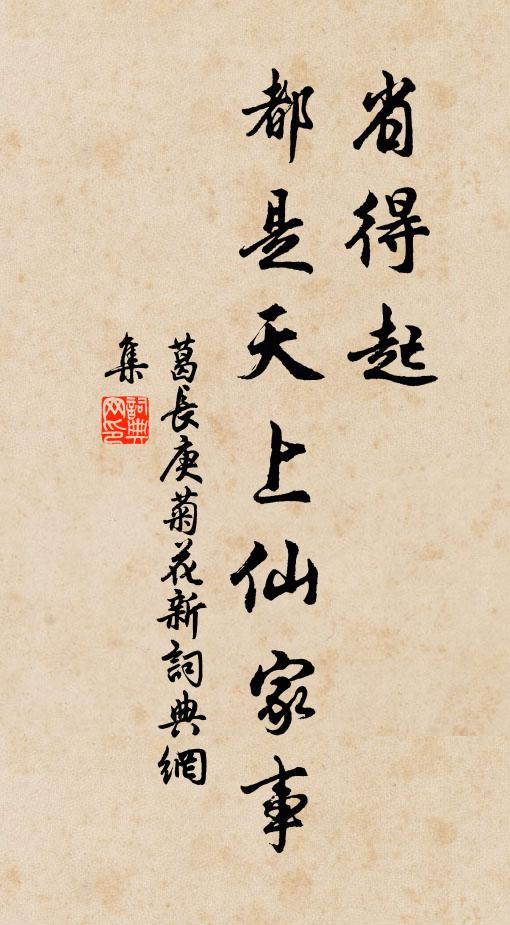 省得起
都是天上仙家事
葛長庚菊花新詞典網
集
詞典网印